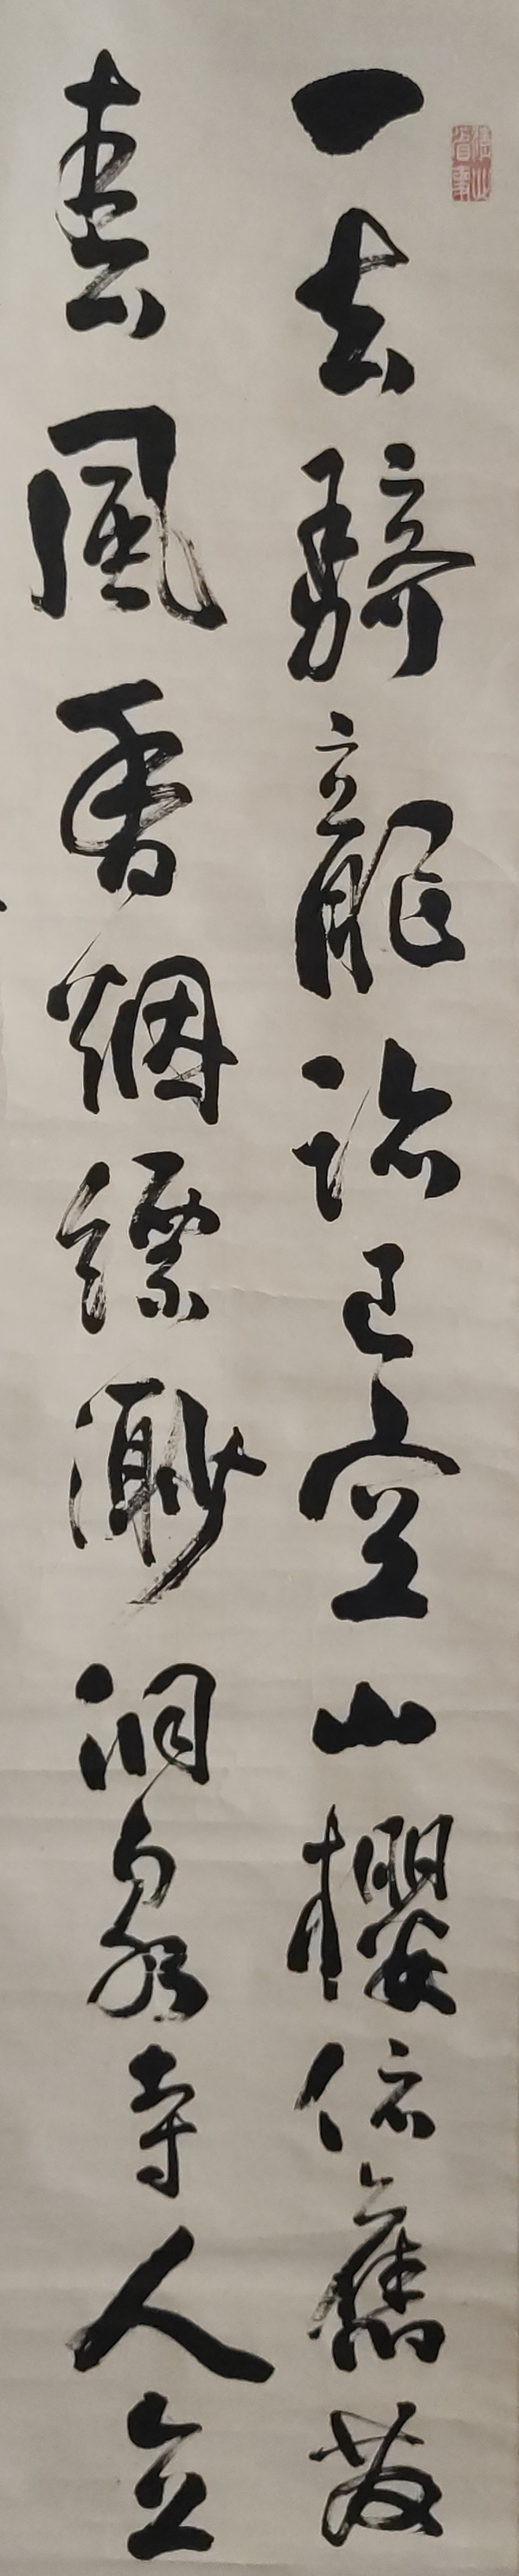 一去騎龍跡已空山櫻依舊發
春風香烟縹渺洞泉寺人立